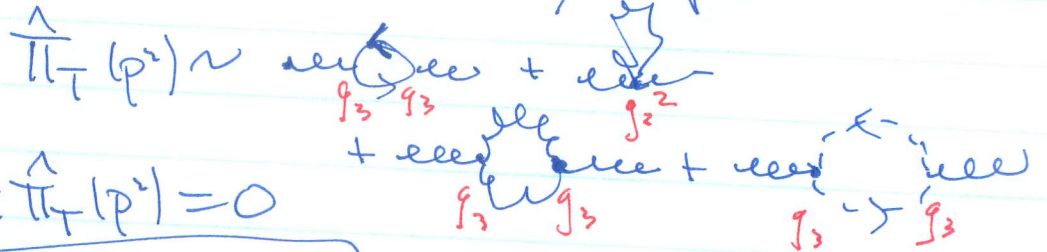 Π̂_T (p²) ~ + 
g₃ g₃ g₃²
+ +
g₃ g₃ g₃ g₃
Π̂_T (p²) = 0